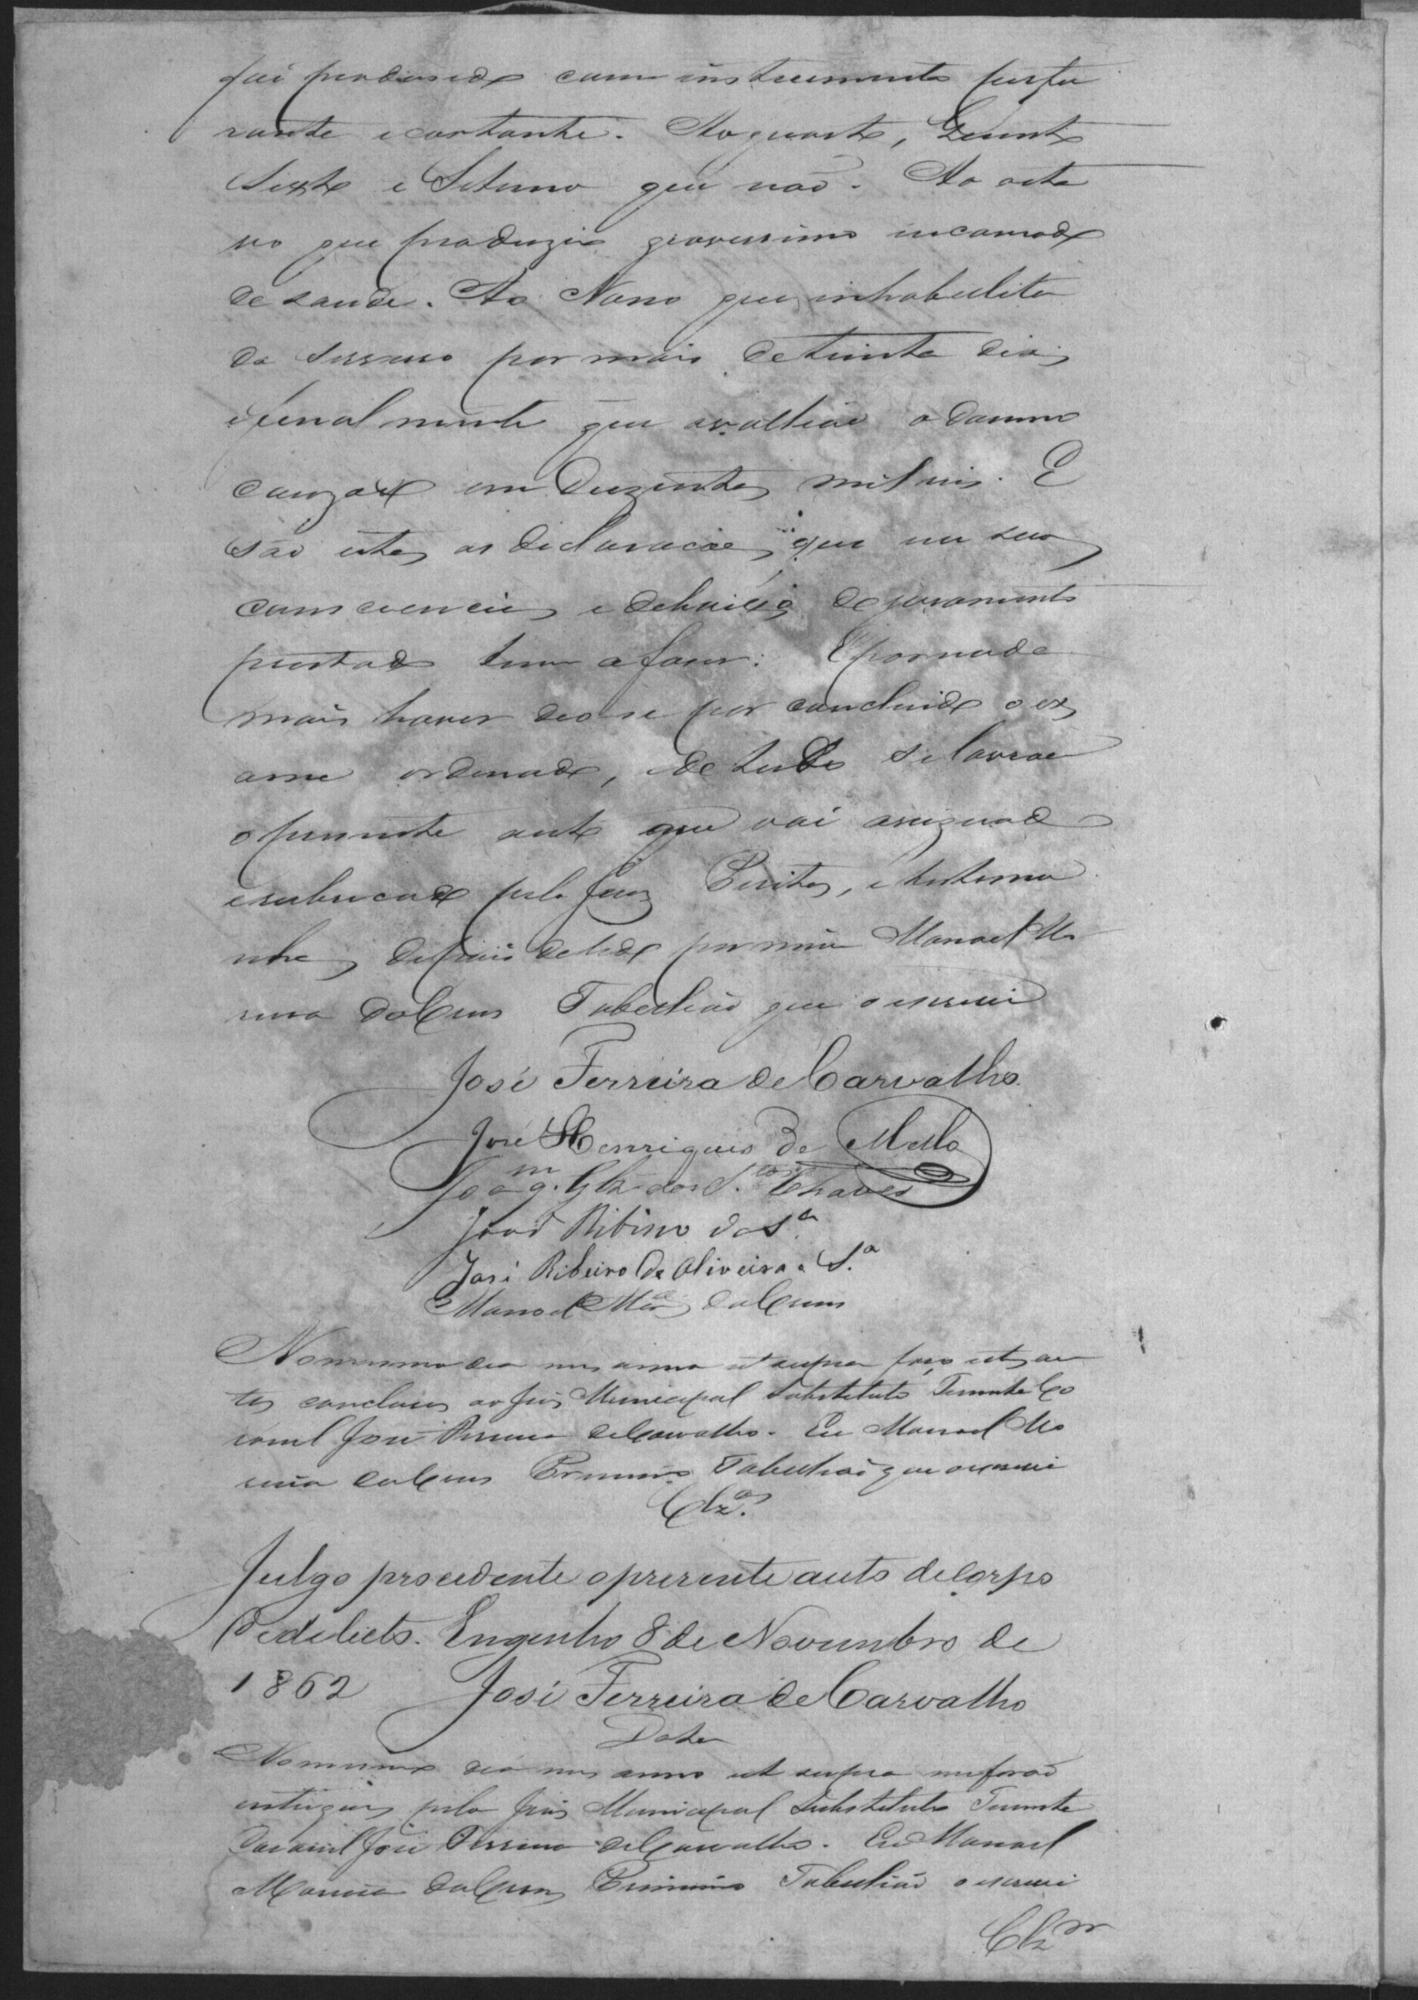 foi produsido com instrumento perfu
rante e cortante. Ao quarto, Quinto
Sexto e Setimo que não. Ao oita
vo que produzio gravissimo incomodo
de saude. Ao Nono que inhabilita
do serviso por mais de trinta dias
e finalmente que avalião o damno
cauzado em Duzentos mil reis. E
são estas as declaracões que em suas
consciencias e debaixo de juramento
prestado tem a faser: E por nada
mais haver deo-se por concluido o ex
ame ordenado, e de tudo se lavrou
o presente auto que vai asignado
e rubricado pelo Juiz Peritos, e testemu
nhas depois de lido por mim Manoel Ma
ria da Crus Tabelião que o escrevi
José Ferreira de Carvalho
José Henriques de Mello
Joaqm. Glz dos S.tos Chaves
João Ribiro da Sa
José Ribeiro de Oliveira e S.a
Manoel Mar.a da Crus
No mesmo dia mes anno ut supra faço estes au
tos conclusos ao Juis Municipal Substituto Tenente Co
ronel José Ferreira de Carvalho. Eu Manoel Ma
ria da Crus Primeiro Tabelião que o escrevi
Clz.os
Julgo procedente o prezente auto de corpo
de delicto. Engenho 8 de Novembro de
1862 José Ferreira de Carvalho
Data
No mesmo dia mes anno ut supra me forão
entregues pelo Juis Municipal Substituto Tenente
Coronel José Ferreira de Carvalho. Eu Manoel
Maria da Crus Primeiro Tabelião o escrevi